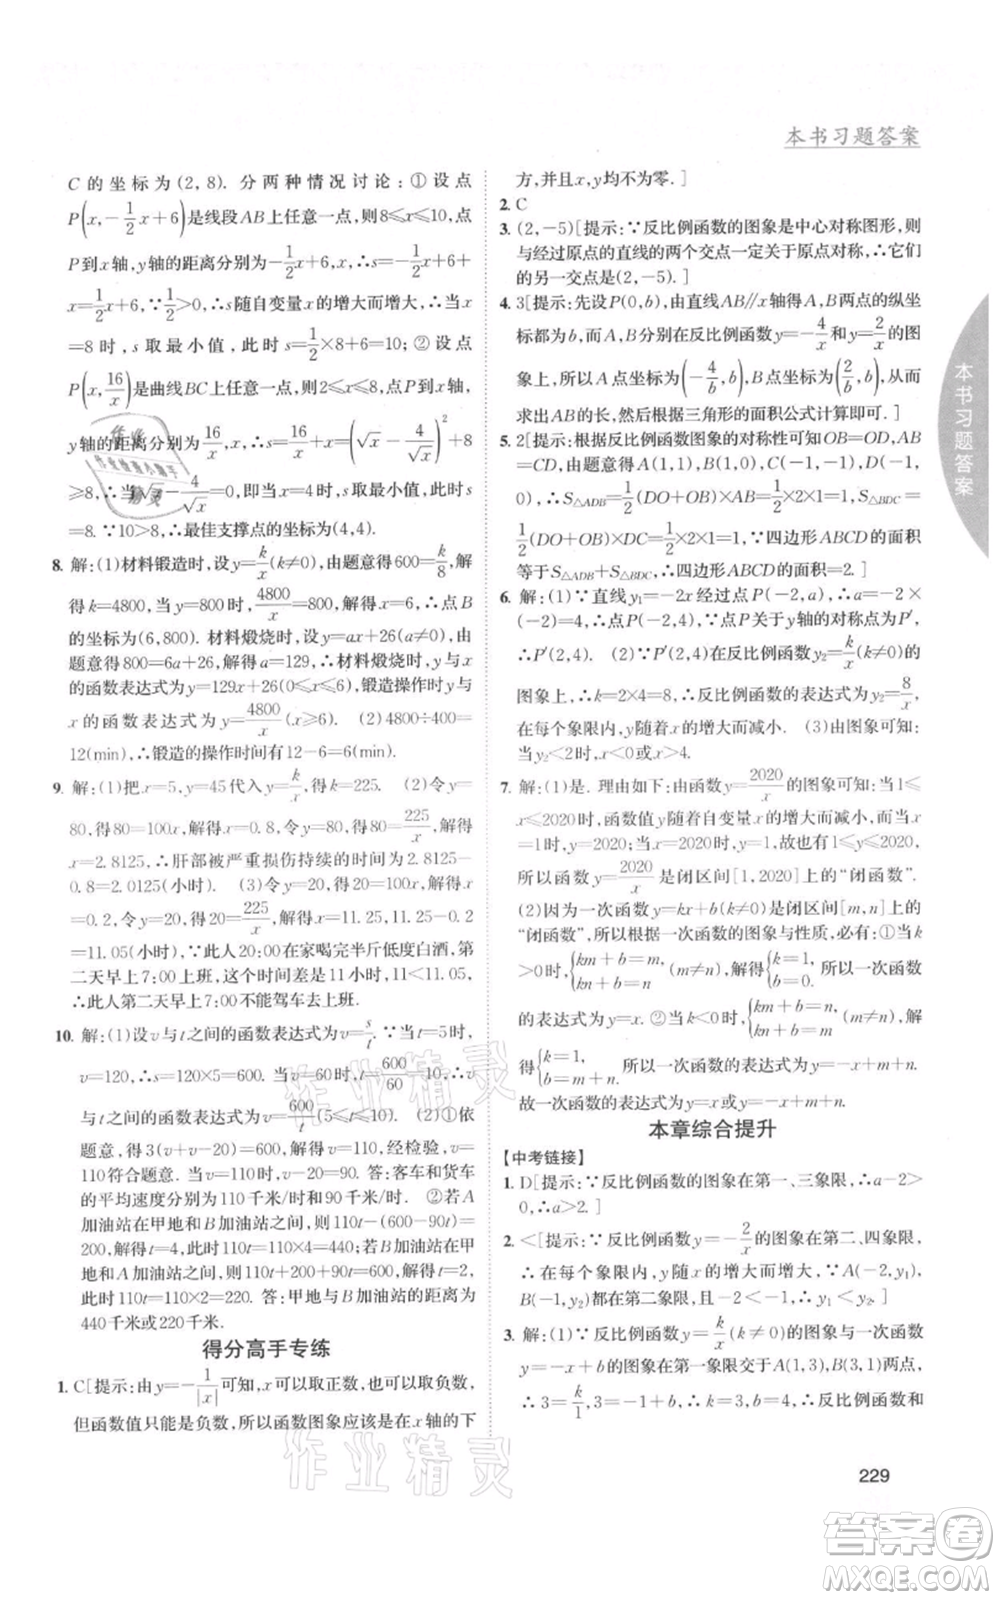 本书习题答案
C 的坐标为(2,8). 分两种情况讨论:①设点
P(x,-1/2x+6)是线段AB上任意一点,则8≤x≤10,点
P到x轴,y轴的距离分别为-1/2x+6,x,∴s=-1/2x+6+
x=1/2x+6,∵1/2>0,∴s随自变量x的增大而增大,∴当x
=8时,s取最小值,此时s=1/2×8+6=10;②设点
P(x,16/x)是曲线BC上任意一点,则2≤x≤8,点P到x轴,
y轴的距离分别为16/x,x,∴s=16/x+x=(√x-4/√x)²+8
≥8,∴当√x-4/√x=0,即x=4时,s取最小值,此时s
=8.∵10>8,∴最佳支撑点的坐标为(4,4).
8. 解:(1)材料锻造时,设y=k/x(k≠0),由题意得600=k/8,解
得k=4800,当y=800时,4800/x=800,解得x=6,∴点B
的坐标为(6,800). 材料煅烧时,设y=ax+26(a≠0),由
题意得800=6a+26,解得a=129,∴材料煅烧时,y与x
的函数表达式为y=129x+26(0≤x≤6),锻造操作时y与
x的函数表达式为y=4800/x(x≥6). (2)4800÷400=
12(min),∴锻造的操作时间有12-6=6(min).
9. 解:(1)把x=5,y=45代入y=k/x,得k=225. (2)令y=
80,得80=100x,解得x=0.8,令y=80,得80=225/x,解得
x=2.8125,∴肝部被严重损伤持续的时间为2.8125-
0.8=2.0125(小时). (3)令y=20,得20=100x,解得x
=0.2,令y=20,得20=225/x,解得x=11.25,11.25-0.2
=11.05(小时),∵此人20:00在家喝完半斤低度白酒,第
二天早上7:00上班,这个时间段是11小时,11<11.05,
∴此人第二天早上7:00不能驾车去上班.
10. 解:(1)设v与t之间的函数表达式为v=s/t.∵当t=5时,
v=120,∴s=120×5=600,当v=60时,t=600/60=10,∴v
与t之间的函数表达式为v=600/t(5≤t≤10). (2)①依
题意,得3(v+v-20)=600,解得v=110,经检验,v=
110符合题意. 当v=110时,v-20=90. 答:客车和货车
的平均速度分别为110千米/时和90千米/时. ②若A
加油站在甲地和B加油站之间,则110t-(600-90t)=
200,解得t=4,此时110t=110×4=440;若B加油站在
甲地和A加油站之间,则110t+200+90t=600,解得t=2,
此时110t=110×2=220. 答:甲地与B加油站的距离为
440千米或220千米.
得分高手专练
1. C[提示:由y=-1/|x|可知,x可以取正数,也可以取负数,
但函数值只能是负数,所以函数图象应该是在x轴的下
方,并且x,y均不为零.]
2. C
3. (2,-5)[提示:∵反比例函数的图象是中心对称图形,则
与经过原点的直线的两个交点一定关于原点对称,∴它们
的另一交点是(2,-5).]
4. 3[提示:先设P(0,b),由直线AB//x轴得A,B两点的纵坐
标都为b,而A,B分别在反比例函数y=-4/x和y=2/x的图
象上,所以A点坐标为(-4/b,b),B点坐标为(2/b,b),从而
求出AB的长,然后根据三角形的面积公式计算即可.]
5. 2[提示:根据反比例函数图象的对称性可知:OB=OD,AB
=CD,由题意得A(1,1),B(1,0),C(-1,-1),D(-1,
0),∴S△ADB=1/2(DO+OB)×AB=1/2×2×1=1,S△BDC=
1/2(DO+OB)×DC=1/2×2×1=1,∵四边形ABCD的面积
等于S△ADB+S△BDC,∴四边形ABCD的面积=2.]
6. 解:(1)∵直线y₁=-2x经过点P(-2,a),∴a=-2×
(-2)=4,∴点P(-2,4),∴点P关于y轴的对称点为P′,
∴P′(2,4). (2)∵P′(2,4)在反比例函数y₂=k/x(k≠0)的
图象上,∴k=2×4=8,∴反比例函数的表达式为y₂=8/x,
在每个象限内,y随x的增大而减小. (3)由图象可知:
当y₂<2时,x<0或x>4.
7. 解:(1)是. 理由如下:由函数y=2020/x的图象可知:当1≤
x≤2020时,函数值y随着自变量x的增大而减小,而当x
=1时,y=2020;当x=2020时,y=1,故也有1≤y≤2020,
所以函数y=2020/x是闭区间[1,2020]上的“闭函数”.
(2)因为一次函数y=kx+b(k≠0)是闭区间[m,n]上的
“闭函数”,所以根据一次函数的图象与性质,必有:①当k
>0时,{km+b=m, kn+b=n,(m≠n),解得{k=1, b=0. 所以一次函数
的表达式为y=x. ②当k<0时,{km+b=n, kn+b=m,(m≠n),解
得{k=-1, b=m+n. 所以一次函数的表达式为y=-x+m+n.
故一次函数的表达式为y=x或y=-x+m+n.
本章综合提升
【中考链接】
1. D[提示:∵反比例函数的图象在第一、三象限,∴a-2>
0,∴a>2.]
2. <[提示:∵反比例函数y=-2/x的图象在第二、四象限,
∴在每个象限内,y随x的增大而增大,∵A(-2,y₁),
B(-1,y₂)都在第二象限,且-2<-1,∴y₁<y₂.]
3. 解:∵反比例函数y=k/x(k≠0)的图象与一次函数
y=-x+b的图象在第一象限交于A(1,3),B(3,1)两点,
∴3=k/1,3=-1+b,∴k=3,b=4,∴反比例函数和
229
本书习题答案
作业精灵
作业精灵
答案圈
MXQE.COM